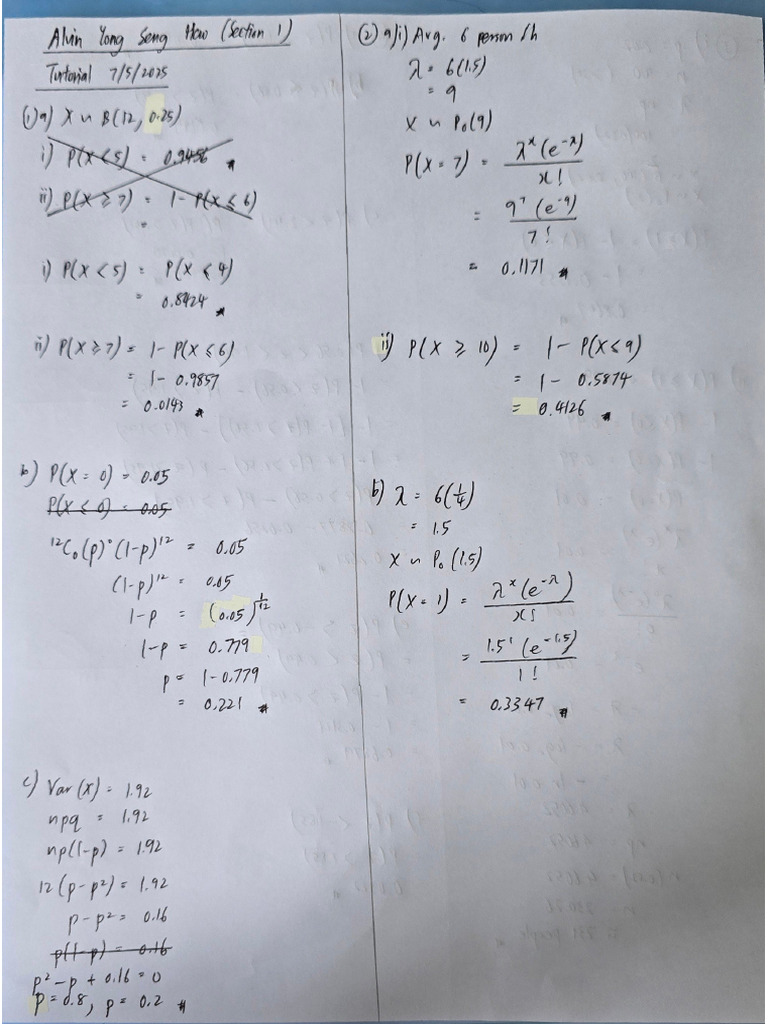 Alvin Yong Seng Haw (Section 1)
Tutorial 7/5/2025
① a) X ~ B(12, 0.25)
i) P(X < 5) = 0.9456
ii) P(X ≥ 7) = 1 - P(X ≤ 6)
=
i) P(X < 5) = P(X ≤ 4)
= 0.8424
ii) P(X ≥ 7) = 1 - P(X ≤ 6)
= 1 - 0.9857
= 0.0143
b) P(X = 0) = 0.05
P(X ≤ 0) = 0.05
¹²C₀(p)⁰(1-p)¹² = 0.05
(1-p)¹² = 0.05
1-p = (0.05)^(1/12)
1-p = 0.779
p = 1 - 0.779
= 0.221
c) Var(X) = 1.92
npq = 1.92
np(1-p) = 1.92
12(p-p²) = 1.92
p - p² = 0.16
p(1-p) = 0.16
p² - p + 0.16 = 0
p = 0.8, p = 0.2
② a) i) Avg. 6 person /h
λ = 6(1.5)
= 9
X ~ P₀(9)
P(X = 7) = λˣ(e^(-λ)) / x!
= 9⁷(e⁻⁹) / 7!
= 0.1171
ii) P(X ≥ 10) = 1 - P(X ≤ 9)
= 1 - 0.5874
= 0.4126
b) λ = 6(1/4)
= 1.5
X ~ P₀(1.5)
P(X = 1) = λˣ(e^(-λ)) / x!
= 1.5¹(e^(-1.5)) / 1!
= 0.3347